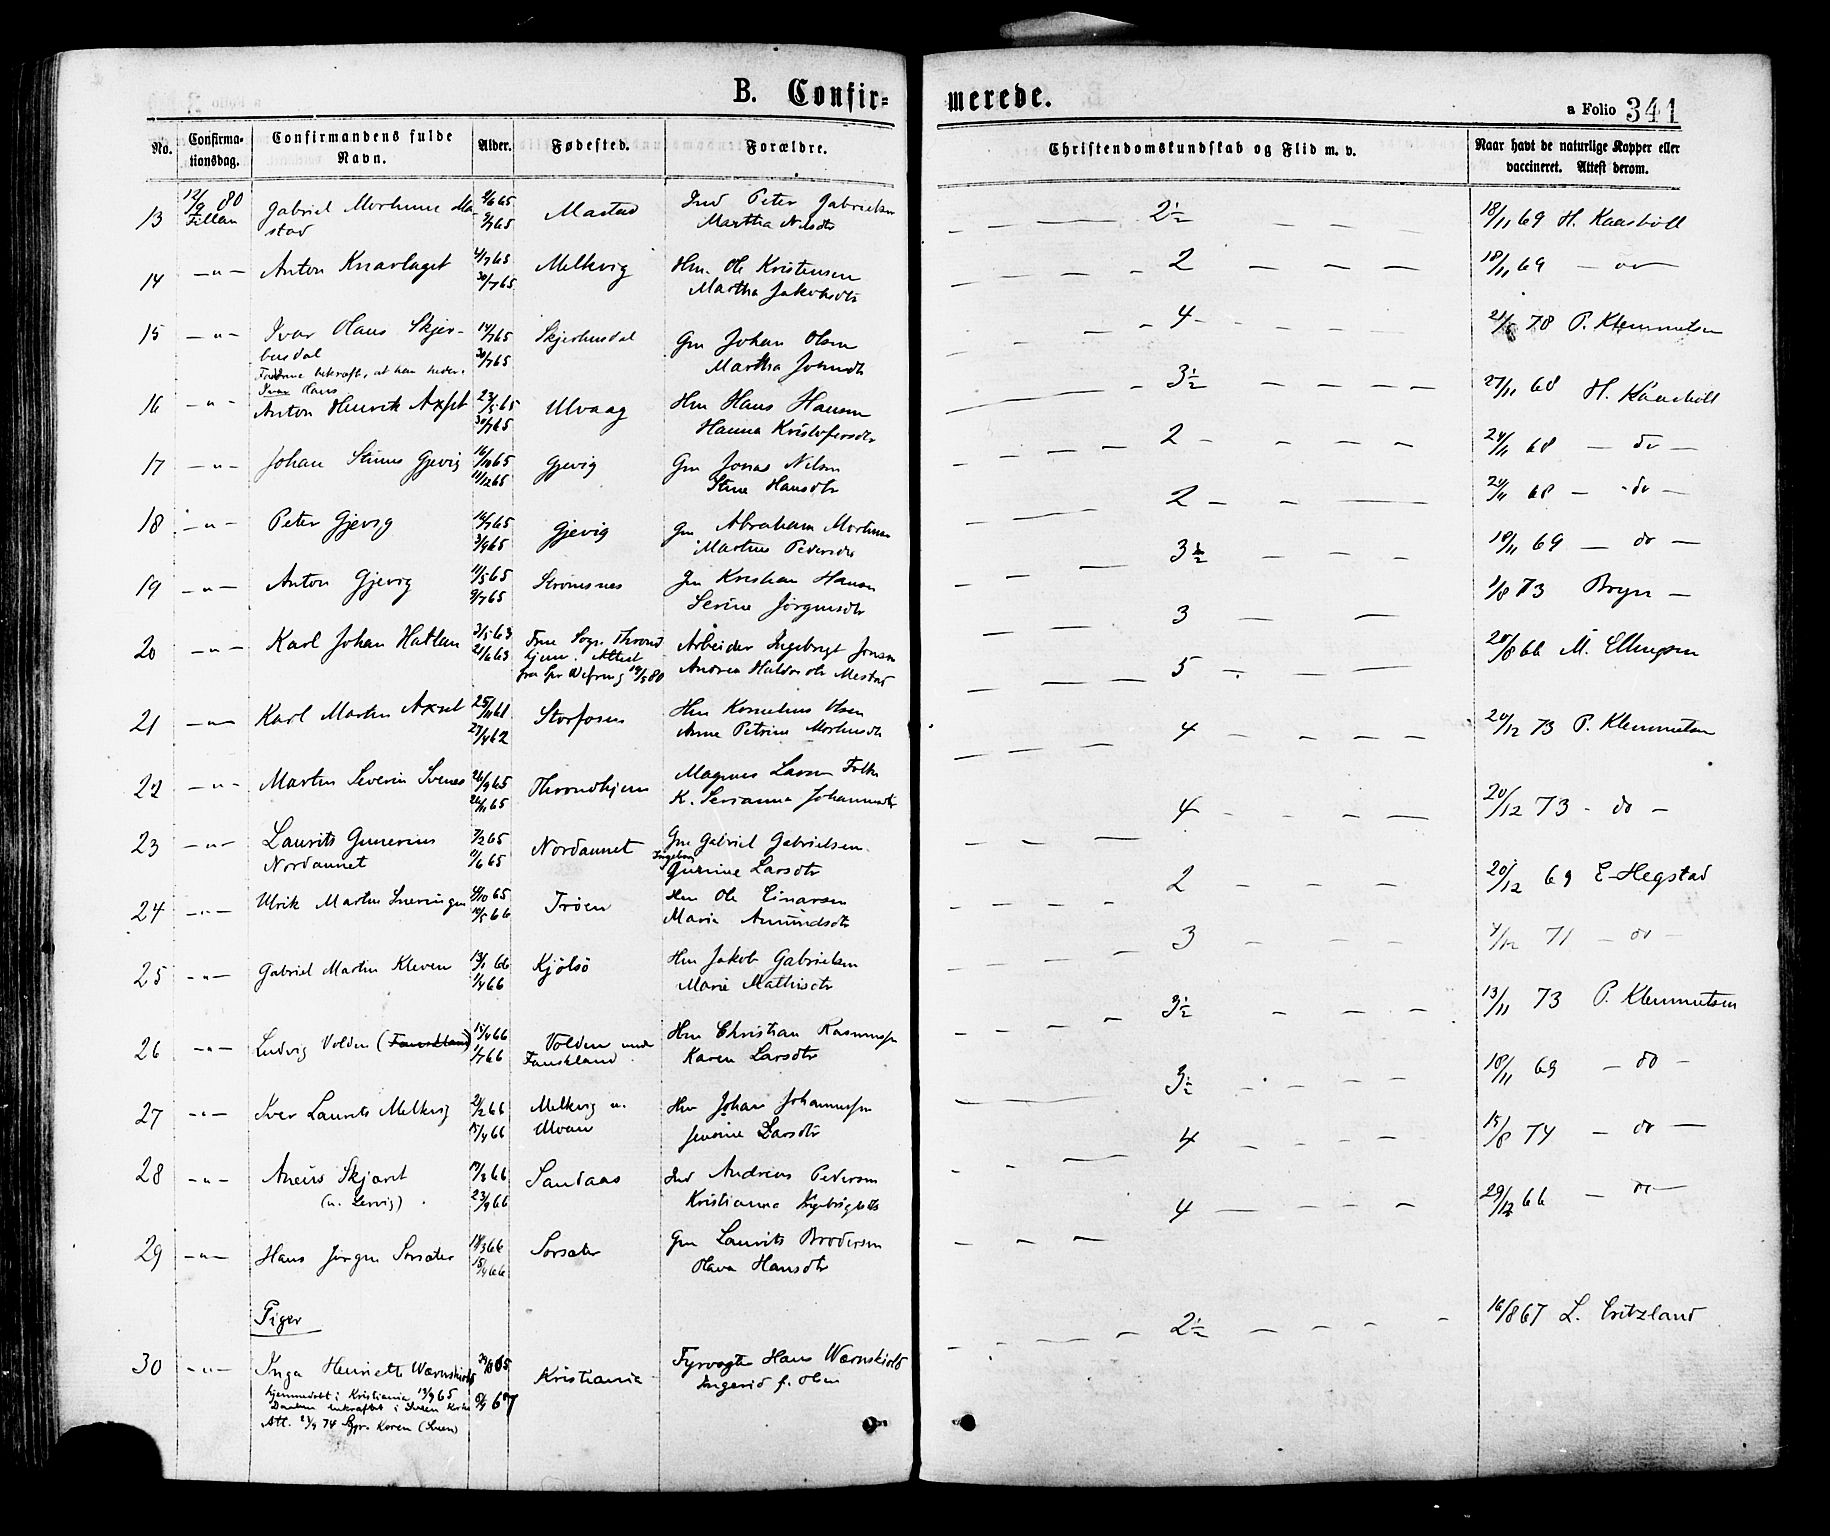 B. Confir=
merede.
a Folio 341
No.
Confirma-
tionsdag.
Confirmandens fulde
Navn.
Alder.
Fødested.
Forældre.
Christendomskundskab og Flid m. v.
Naar havt de naturlige Kopper eller
vaccineret. Attest derom.
13 12/9 80 Gabriel Mastad 2/6 65 Mastad Ind Peter Gabrielsen 2½ 18/11 69 H. Kaasböll
Fillan stad 9/7 65 Martha Nilsdtr
14 -"- Anton Knarlaget 4/7 65 Melkvig Hm. Ole Kristensen 2 18/11 69 - do -
30/7 65 Martha Jakobsdtr
15 -"- Ivar Hans Skjer- 14/7 65 Skjerbusdal Gm Johan Olsen 4 78 P. Klemmetsen
busdal 30/7 65 Martha Johnsdtr
bekræft, at han heder
Ivar Hans
16 -"- Anton Henrik Axset 65 Ulvaag Hm Hans Hansen 3½ 27/11 68 H. Kaasböll
30/7 65 Hanna Kristofersdtr
17 -"- Johan Stinus Gjevig 16/10 65 Gjevig Gm Jonas Nilsen 2 24/11 68 - do -
11/12 65 Stine Hansdtr
18 -"- Peter Gjevig 14/7 65 Gjevig Gm Abraham Mortensen 2 24/11 68 - do -
3/9 65 Pedersdtr
19 -"- Anton Gjevig 11/5 65 Strømsnes Gm Kristian Hansen 3½ 18/11 69 - do -
9/7 65 Serine Jørgensdtr
20 -"- Karl Johan Hatlan 3/5 63 Frue Sogn Thrond Arbeider Ingebrigt Jonsen 3 1/8 73 Bryn -
21/6 63 hjem. Attest Andrea Mestad
19/5 80
21 -"- Karl Martin Axset 25/11 61 Storfosen Hm Kornelius Olsen 5 20/8 66 M. Ellingsen
27/4 62 Anne Petrine Mortensdtr
22 -"- Martin Severin Svenes 26/9 65 Throndhjem Magnus Larsen Falk 4 20/12 73 P. Klemmetsen
26/11 65 K. Serianna Johannesdtr
23 -"- Laurits Gunerius 7/2 65 Nordannet Gm Gabriel Gabrielsen 4 20/12 73 - do -
Nordannet 11/6 65 Ingeborg
Gurine Larsdtr
24 -"- Ulrik Martin 65 Trøen Hm Ole Einarsen 2 20/12 69 E. Hegstad
10/5 66 Maria Amundsdtr
25 -"- Gabriel Martin Kleven 13/1 66 Kjölsö Hm Jakob Gabrielsen 3 4/12 71 - do -
1/4 66 Marie Mathisdtr
26 -"- Ludvig Volden (Fauskland) 15/4 66 Volden under Hm Christian Rasmussen 3½ 13/11 73 P. Klemmetsen
1/7 66 Fauskland. Karen Larsdtr
27 -"- Iver Laurits Melkvig 21/2 66 Melkvig u. Hm Johan Johannessen 3½ 18/11 69 - do -
15/4 66 Ulven Larsdtr
28 -"- Skjæret 17/3 66 Sandaas Ind Andreas Pedersen 4 15/8 74 - do -
(u. Lervig) 23/9 66 Kristianna Ingebrigtsdtr
29 -"- Hans Jørgen Sørsæter 18/3 66 Sørsæter Gm Laurits Brodersen 4 29/12 66 - do -
15/4 66 Olava Hansdtr
Piger
30 -"- Inga Henriette Wærnskiold 65 Kristiania Fyrvogter Hans Wærnskiold 2½ 16/8 67 L. Critzland
hjemmedøbt i Kristiania 13/9 65 67 Ingerid f. Olsen
Daaben bekræftet i Kirke
Att. 21/9 74 Sgpr. Koren